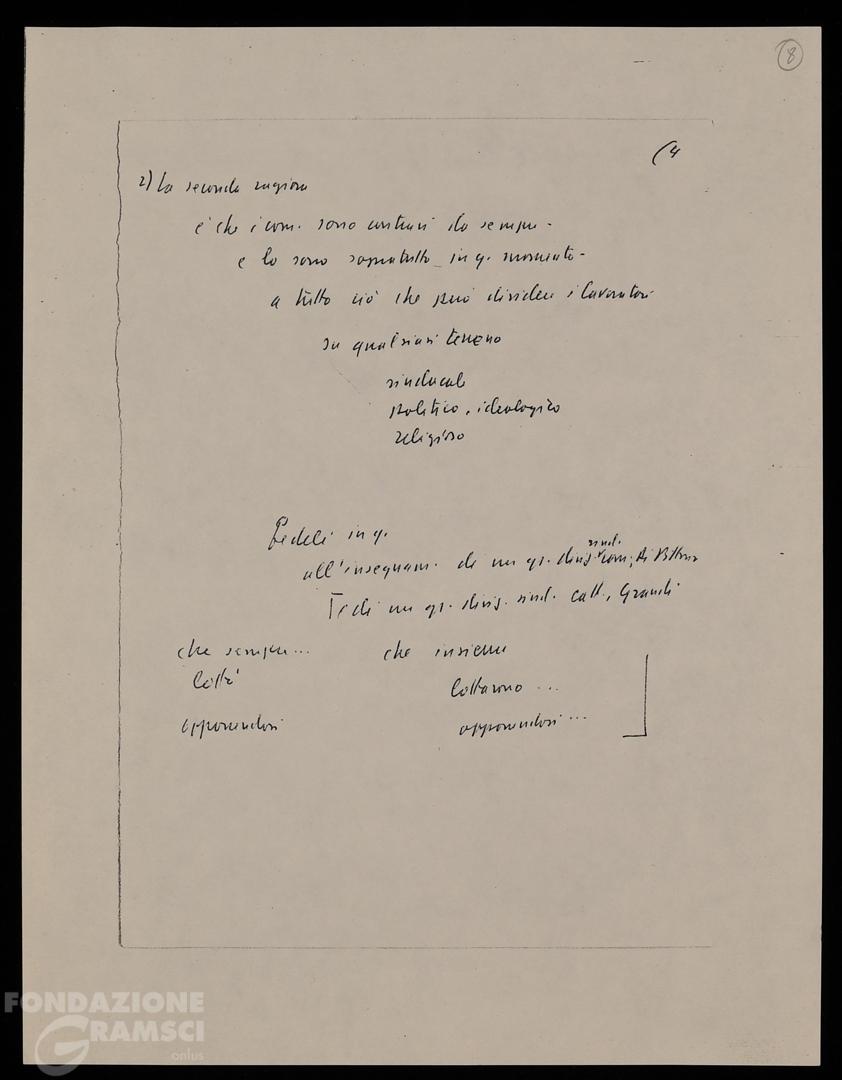 8
(4
2) La seconda ragione
è che i com. sono contrari da sempre -
e lo sono sopratutto in q. momento -
a tutto ciò che può dividere i lavoratori
su qualsiasi terreno
sindacale
politico, ideologico
religioso
Fedeli in q.
all'insegnam. di un gr. dirig. sind. com., Di Vittorio
e di un gr. dirig. sind. catt., Grandi
che sempre... che insieme
lottò lottarono ...
opponendosi opponendosi ...
FONDAZIONE
GRAMSCI
onlus